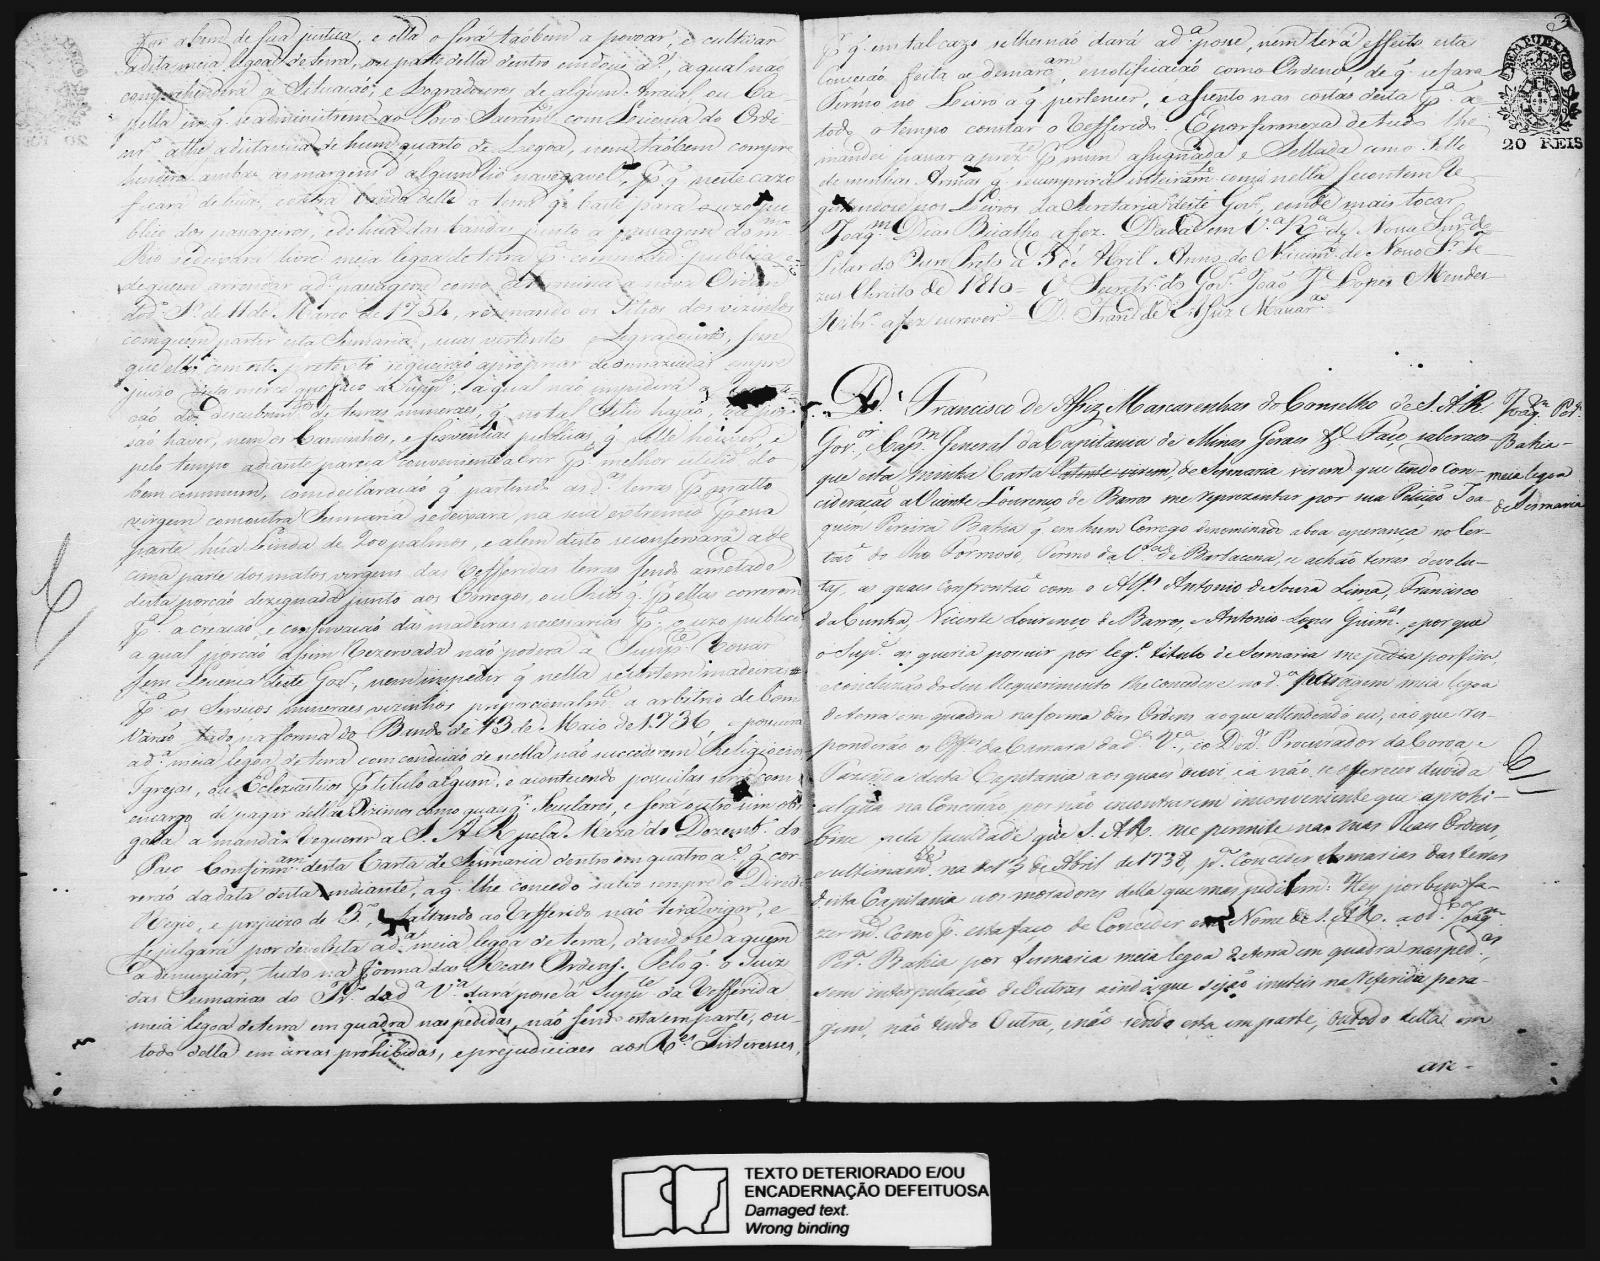 for a bem de sua justiça, e ella o será taõbem a povoar, e cultivar
a dita meia legoa de terra, ou parte della dentro em dois a.s, a qual não
comprehenderá a Situaçaõ, e Logradouros de algum Arraial, ou Ca-
pella em q. se administrem ao Povo Sacram.tos com Licença do Ordi-
nr.o athe a distancia de hum quarto de Legoa, nem taõbem compre
henderá ambas as margens d'algum Rio navegavel, p.r q. neste cazo
ficará de huma, e outra banda delle a terra q. baste para o uzo pu-
blico dos passageiros, e de huã das bandas junto a passagem do m.mo
Rio se deixará livre meia legoa de terra p.a commod.e publica e
de quem arrendar a d.a passagem como determina a nova Ordem
do d.o S.r de 11 de Março de 1754, rezervando os Sitios dos vizinhos
com quem partir esta Sesmaria, suas vertentes e Logradouros, sem
que elles com este pretexto se queiraõ apropriar de demaziadas em pre
juizo desta merce que faço ao Supp.e, a qual naõ impedirá a reparti-
çaõ dos descobrim.tos de terras mineraes, q. no tal Sitio hajaõ, ou pos-
saõ haver, nem os Caminhos, e Serventias publicas, q. nelle houver, e
pelo tempo adiante pareça conveniente abrir p.a melhor utilid.e do
bem commum, com declaraçaõ q. partindo as d.as terras p.r matto
virgem com outra Sesmaria se deixará na sua extremid.e p.r essa
parte huã Linda de 200 palmos, e alem desto se conservará a de
cima parte dos matos virgens das refferidas terras sendo ametade
desta porçaõ dezignada junto aos Corregos, ou Rios q. p.r ellas correrem
p.a a creaçaõ, e conservaçaõ das madeiras necessarias p.a o uzo publico
a qual porçaõ assim rezervada naõ poderá a Supp.te rossar
sem Licença deste Gov.o, nem impedir q. nella se cortem madeiras
p.a os Servissos mineraes vizinhos proporcionalm.te a arbitrio de bom
Varaõ tudo na forma do Bando de 13 de Maio de 1736, e possuirá
a d.a meia legoa de terra com condiçaõ de nella naõ succederem Religioens
Igrejas, ou Ecleziasticos p.r titulo algum, e acontecendo possuilas será com
encargo de pagar dellas Dizimos como quaisq.r Seculares, e será outro sim obri
gada a mandar requerer a S. A. R. pela Meza do Dezemb.o do
Paço Confirm.am desta Carta de Sesmaria dentro em quatro a.s q. cor
reraõ da data desta em diante, a q. lhe concedo salvo sempre o Direito
Regio, e prejuizo de 3.o, e faltando ao refferido naõ terá vigor, e
se julgará por devoluta a d.a meia legoa de terra, dandose a quem
a denunciar, tudo na forma das Reaes Ordens. Pelo q. o Juiz
das Sesmarias do Tr.o da d.a V.a dará posse á Supp.te da refferida
meia legoa de terra em quadra nas pedidas, naõ sendo esta em parte, ou
todo della em áreas prohibidas, e prejudiciaes aos R.es Interesses,
3
REM PUBLICO
20 REIS
p.r q. em tal cazo se lhe naõ dará a d.a posse, nem terá effeito esta
Conceçaõ, feita a demarc.am, e notificaçaõ como Ordeno, de q. se fará
Termo no Livro a q. pertencer, e assento nas costas desta p.a a
todo o tempo constar o refferido. E por firmeza de tudo lhe
mandei passar a prez.te p.r mim assignada e Sellada com o Sello
de minhas Armas q. se cumprirá inteiram.te como nella se contem re
gistandose nos Livros da Secretaria deste Gov.o, e onde mais tocar
Joaq.m Dias Bicalho a fez. Dada em V.a R.a de Nossa Snr.a do
Pilar do Ouro Preto a 5 de Abril Anno do Nascim.to de Nosso Sr. Je-
zus Christo de 1810 = O Secretr.o do Gov.o João J.e Lopes Mendes
Ribr.o a fez escrever = D. Fran.co de Assiz Mascar.as
D. Francisco de Assiz Mascarenhas do Conselho de S. A. R.
Gov.or, e Cap.m General da Capitania de Minas Geraes &.a Faço saber aos
que esta minha Carta Patente virem, de Sesmaria virem que tendo con-
cideração a Vicente Lourenço de Barros me reprezentar por sua Petição Joa-
quim Pereira Bahia q. em hum Corrego denominado a boa esperança no Cer-
tão do Rio Formoso, Termo da V.a de Barbacena, se achão terras devolu-
tas, as quaes confrontão com o Alf.s Antonio de Souza Lima, Francisco
da Cunha, Vicente Lourenço de Barros, e Antonio Lopes Guim.es, e por que
o Sup.e as queria possuir por leg.o titulo de Sesmaria me pedia por fim,
e concluzão do seu Requerimento lhe concedesse na d.a paragem meia legoa
de terra em quadra na forma das Ordens ao que attendendo eu, e ao que res-
ponderão os Off.es da Camara da d.a V.a, e o Dez.or Procurador da Coroa e
Fazenda desta Capitania aos quaes ouvi, e a não se offerecer duvida
algũa na Conceção, por não encontrarem inconveniente que a prohi-
bisse, pela faculdade que S. A. R. me permite nas suas Reaes Ordens,
e ultimam.te na de 13 de Abril de 1738, p.a Conceder Sesmarias das terras
desta Capitania aos moradores della que mas pedirem: Hey por bem fa-
zer m.ce como p.r esta faço de Conceder em Nome de S. A. R. ao d.o Joaq.m
Per.a Bahia por Sesmaria meia legoa de terra em quadra nas ped.as,
sem interpolação de Outras ainda que sejão inuteis na referida para-
gem, não tendo Outra, e não sendo esta em parte, ou todo della em
are-
Joaq.m Per.a
Bahia -
meia legoa
de Sesmaria
TEXTO DETERIORADO E/OU
ENCADERNAÇÃO DEFEITUOSA
Damaged text.
Wrong binding